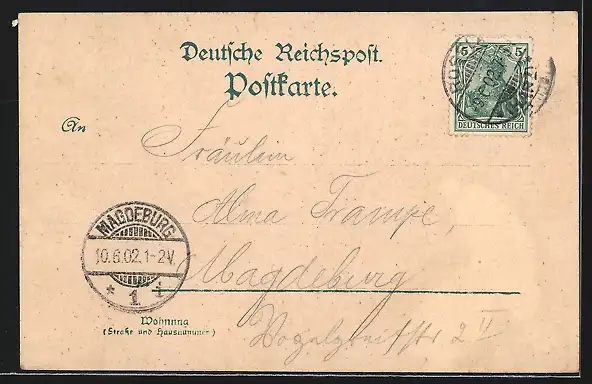 Deutsche Reichspost.
Postkarte.
5 5
DEUTSCHES REICH
An
Fräulein
Alma Trampe,
Magdeburg
MAGDEBURG
10.6.02.1-2V.
* 1 *
Wohnung
(Straße und Hausnummer)
2 II